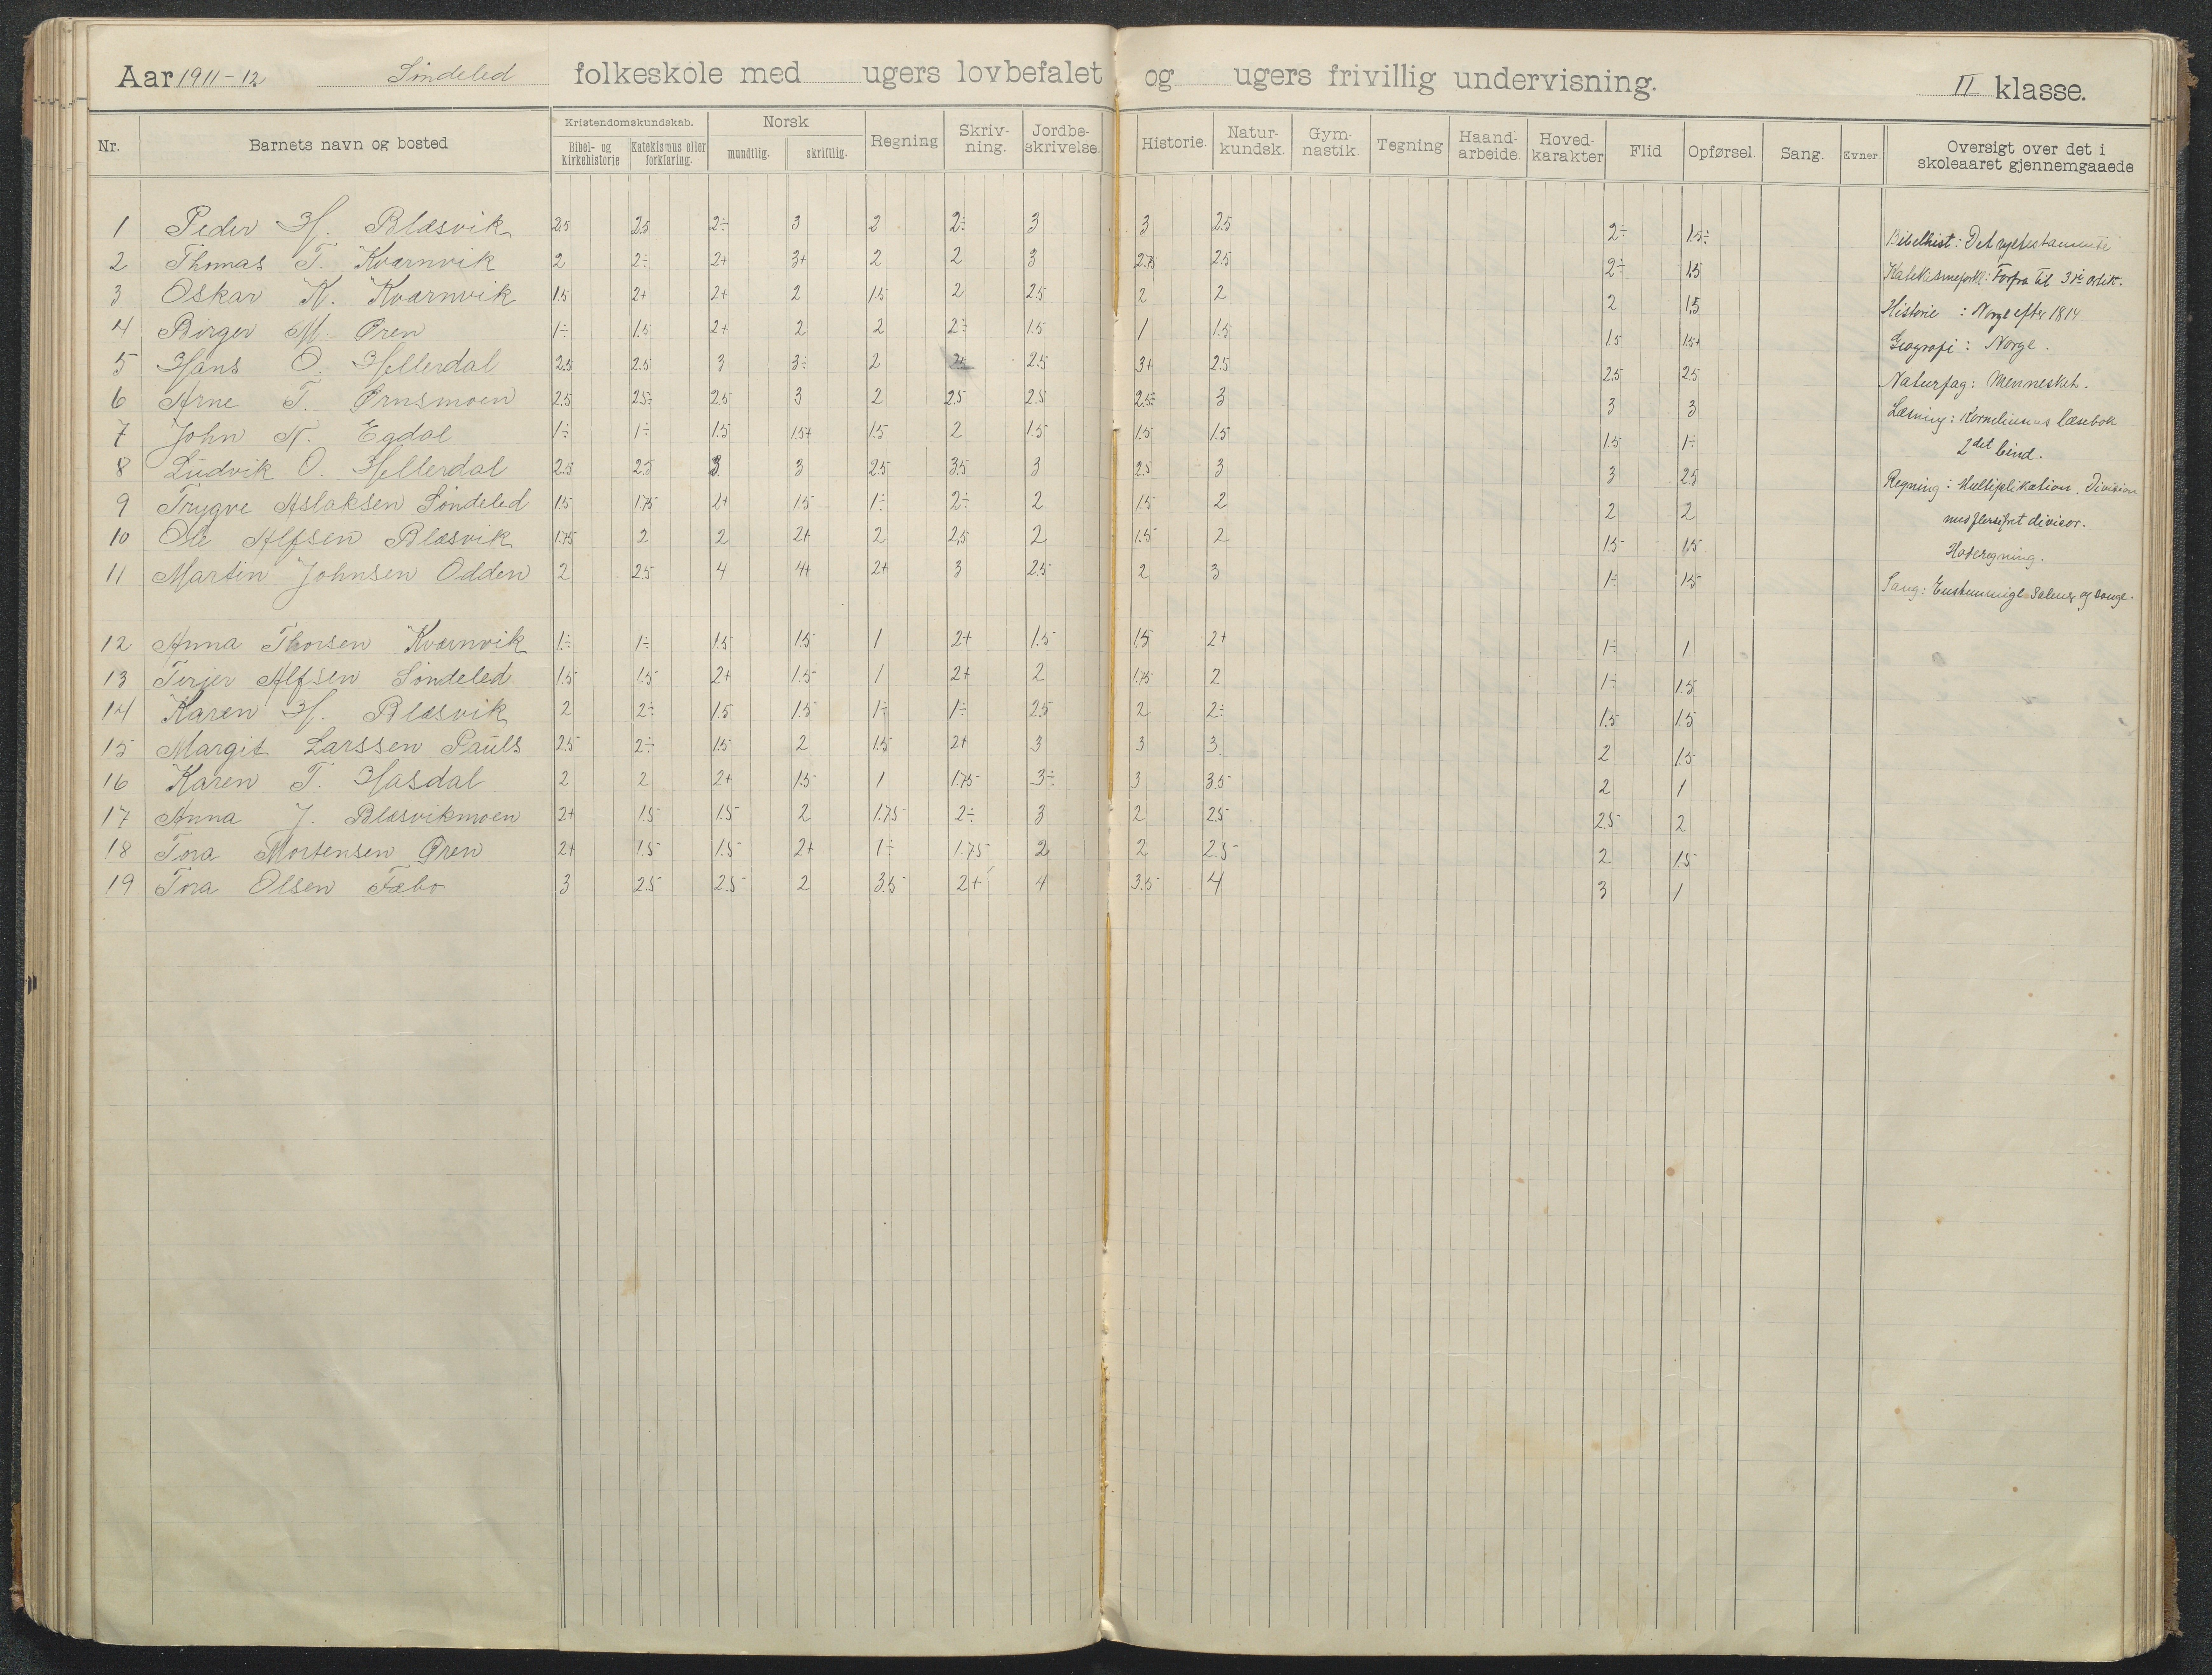 Aar 1911-12. Söndeled folkeskole med ugers lovbefalet og ugers frivillig undervisning. II klasse.
Nr. Barnets navn og bosted Kristendomskundskab. Bibel- og Kirkehistorie Katekismus eller forklaring. Norsk mundtlig. skriftlig. Regning Skriv-ning. Jordbe-skrivelse. Historie. Natur-kundsk. Gym-nastik. Tegning Haand-arbeide. Hoved-karakter Flid Opførsel. Sang. Evner. Oversigt over det i skoleaaret gjennemgaaede
1 Peder H. Blæsvik 2.5 2.5 2÷ 3 2 2÷ 3 3 2.5 2÷ 1.5÷
2 Thomas T. Kværnvik 2 2÷ 2+ 3+ 2 2 3 2.75 2.5 2÷ 1.5
3 Oskar K. Kværnvik 1.5 2+ 2+ 2 1.5 2 2.5 2 2 2 1.5
4 Birger M. Øren 1÷ 1.5 2+ 2 2 2÷ 1.5 1 1.5 1.5 1.5+
5 Hans O. Hellerdal 2.5 2.5 3 3÷ 2 2+ 2.5 3+ 2.5 2.5 2.5
6 Arne T. Ørnsmoen 2.5 2.5÷ 2.5 3 2 2.5 2.5 2.5÷ 3 3 3
7 John N. Egdal 1÷ 1÷ 1.5 1.5+ 1.5 2 1.5 1.5 1.5 1.5 1÷
8 Ludvik O. Hellerdal 2.5 2.5 3 3 2.5 3.5 3 2.5 3 3 2.5
9 Trygve Aslaksen Söndeled 1.5 1.75 2+ 1.5 1÷ 2÷ 2 1.5 2 2 2
10 Ole Alfsen Blæsvik 1.75 2 2 2+ 2 2,5 2 1.5 2 1.5 1.5
11 Martin Johnsen Odden 2 2.5 4 4+ 2+ 3 2.5 2 3 1÷ 1.5
12 Anna Thorsen Kværnvik 1÷ 1÷ 1.5 1.5 1 2+ 1.5 1.5 2+ 1÷ 1
13 Terjer Alfsen Söndeled 1.5 1.5 2+ 1.5 1 2+ 2 1.75 2 1÷ 1.5
14 Karen H. Blæsvik 2 2÷ 1.5 1.5 1÷ 1÷ 2.5 2 2÷ 1.5 1.5
15 Margit Larssen Pauls 2.5 2÷ 1.5 2 1.5 2+ 3 3 3 2 1.5
16 Karen T. Hasdal 2 2 2+ 1.5 1 1.75 3÷ 3 3.5 2 1
17 Anna J. Blæsvikmoen 2+ 1.5 1.5 2 1.75 2÷ 3 2 2.5 2.5 2
18 Tora Mortensen Øren 2+ 1.5 1.5 2+ 1÷ 1.75 2 2 2.5 2 1.5
19 Tora Olsen Fæbo 3 2.5 2.5 2 3.5 2+ 4 3.5 4 3 1
Bibelhist: Det nytestamente
Katekismeforkl: Forfra til 3die artik.
Historie : Norge efter 1814
Geografi : Norge.
Naturfag: Mennesket.
Læsning: Korneliussens læsebok
2det bind.
Regning: Multiplikation. Division
med flersifret divisor.
Hoderegning.
Sang: Enstemmige salmer og sange.